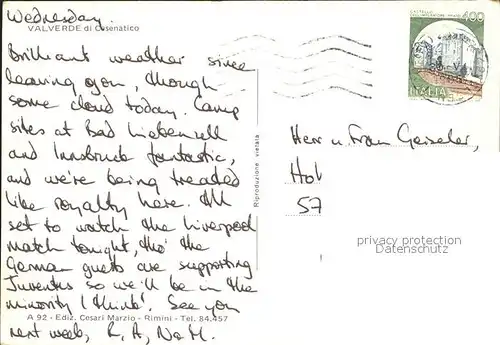 Wednesday.
VALVERDE di Cesenatico
Brilliant weather since
leaving you, though
some cloud today. Camp
sites at Bad Liebenzell
and Innsbruck fantastic,
and we're being treated
like royalty here. All
set to watch the Liverpool
match tonight, tho' the
German guests are supporting
Juventus so we'll be in the
minority I think! See you
next week, R, A, N & M.
A 92 - Ediz. Cesari Marzio - Rimini - Tel. 84.457
Riproduzione vietata
400
ITALIA
Herr u Frau Geiseler,
Hol
57
privacy protection
Datenschutz